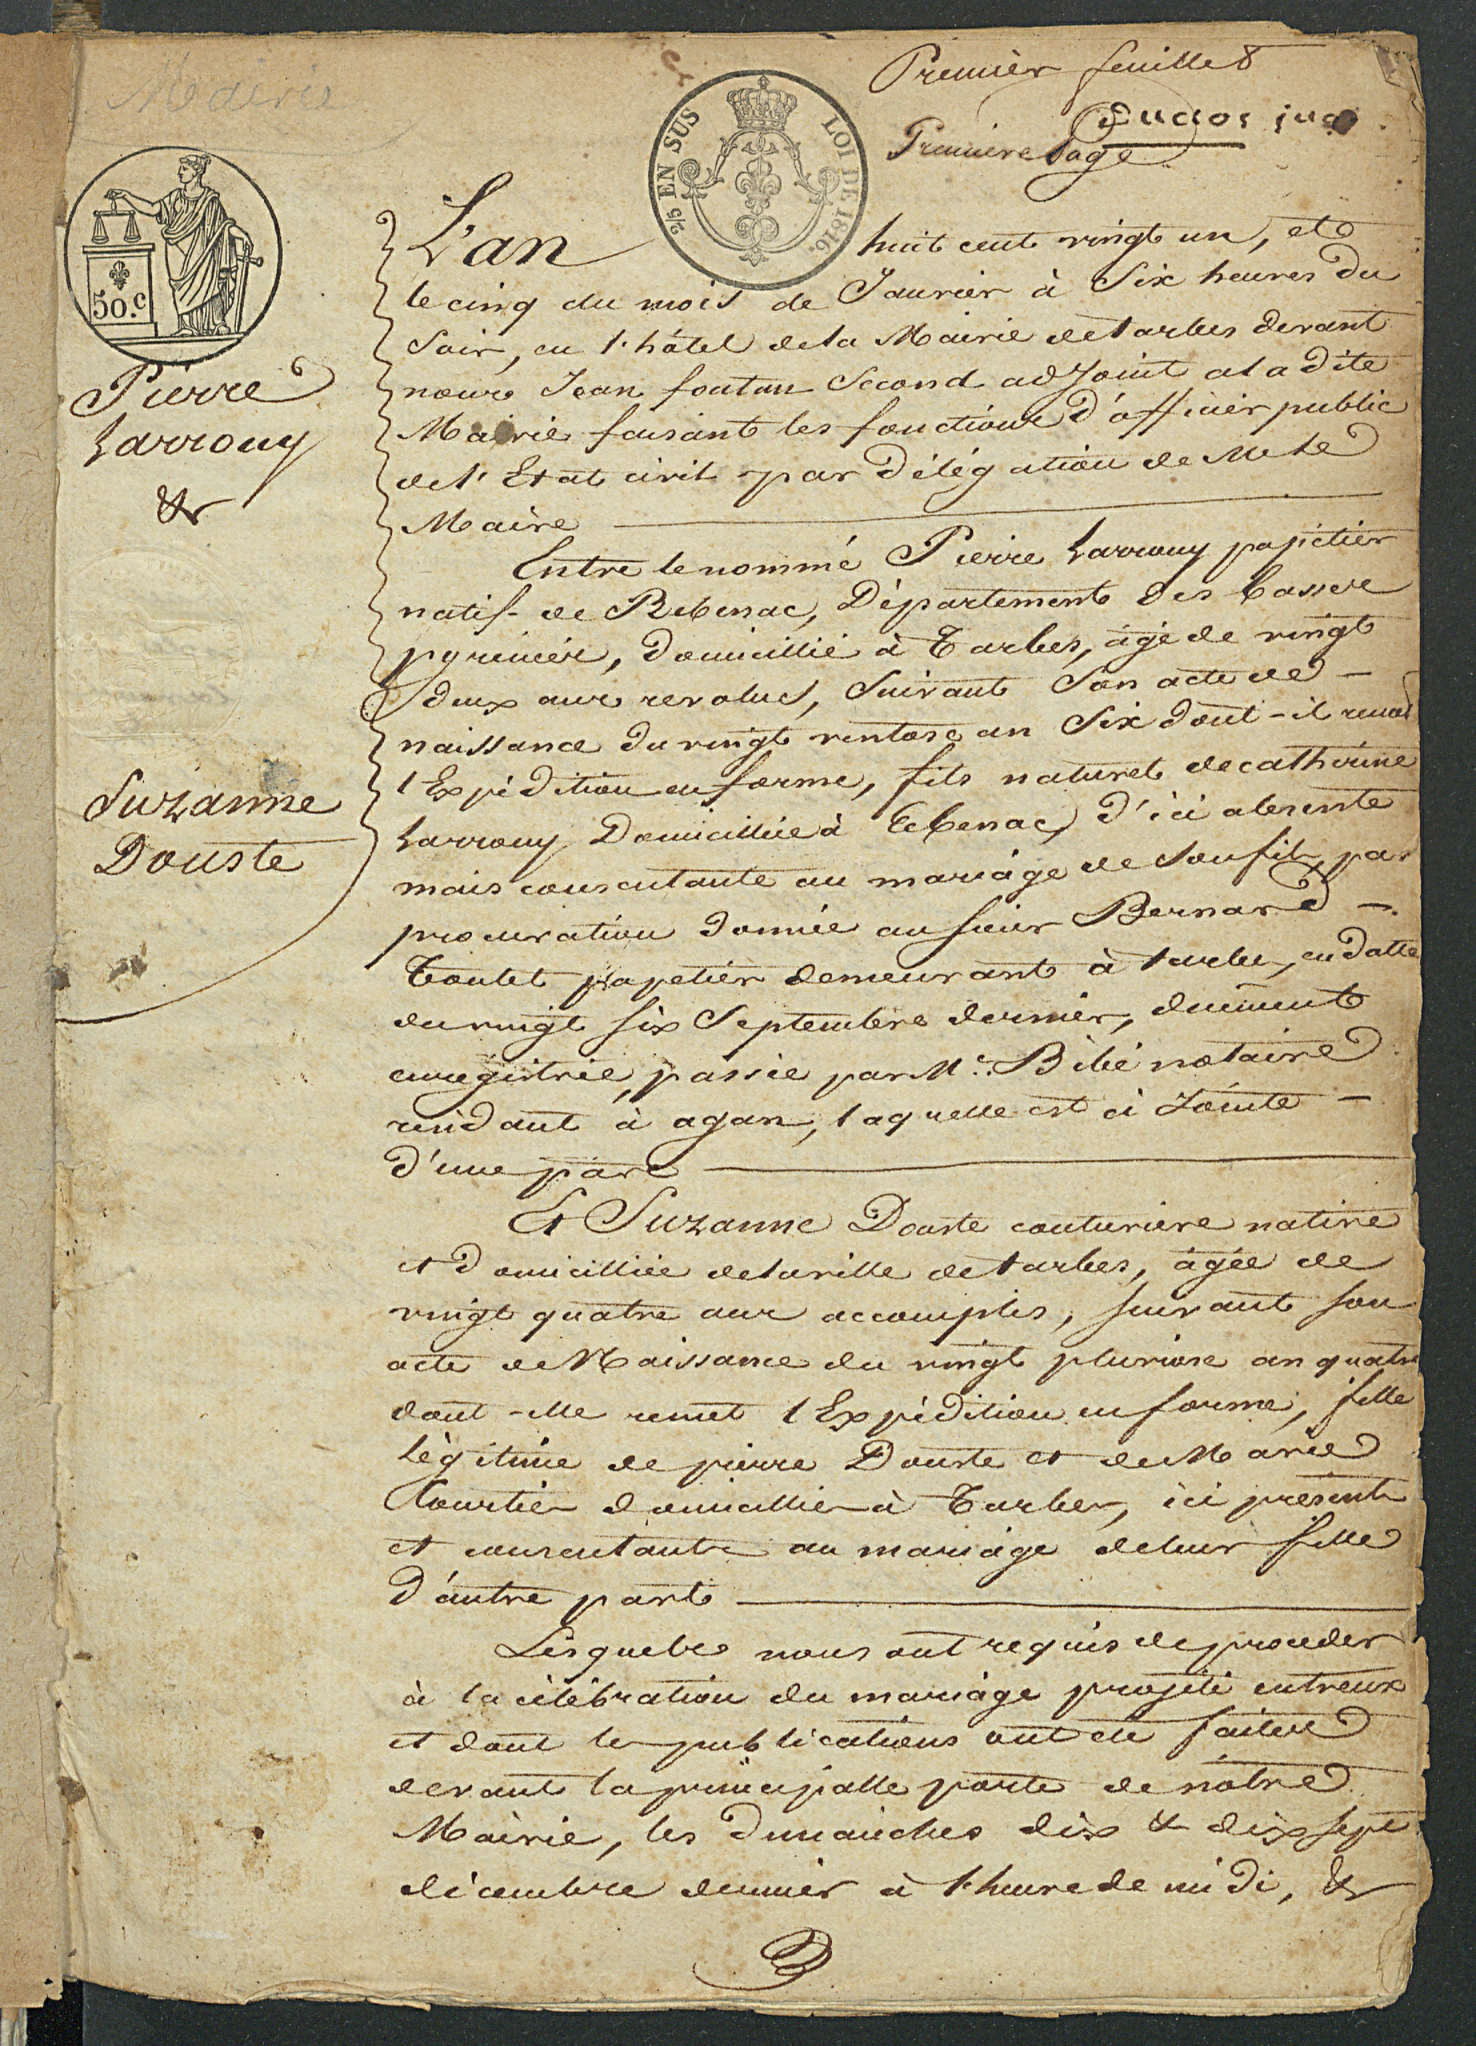 Mairie
Premier feuillet
Duclos juge
Premiere Page
2/5 EN SUS
LOI DE 1816.
50.c
Pierre
Larrouy
&
Suzanne
Douste
L'an huit cent vingt un, et
le cinq du mois de Janvier à Six heures du
Soir, en l'hôtel de la Mairie de tarbes devant
nous Jean foutan Second adjoint a la dite
Mairie faisant les fonctions d'officier public
de l'Etat civil par Délégation de Mr le
Maire
Entre le nommé Pierre Larrouy papetier
natif de Rebenac, Département des basses
pyrenées, domicillié à Tarbes, âgé de vingt
deux ans revolus, Suivant Son acte de
naissance du vingt ventose an Six dont-il remet
l'Expédition en forme, fils naturel de catherine
Larrouy Domicilliée à Rebenac, d'ici absente
mais consentante au mariage de son fils par
procuration donnée au sieur Bernard
Toulet papetier demeurant à tarbes, en datte
du vingt six Septembre dernier, duement
enregistrée, passée par Me. Bibé notaire
residant à agan, laquelle est ci Jointe
d'une part
Et Suzanne Douste couturiere native
et domicilliée de la ville de tarbes, âgée de
vingt quatre ans accomplis, suivant son
acte de Naissance du vingt pluviose an quatre
dont-elle remet l'Expédition en forme, fille
légitime de pierre Douste et de Marie
Courtie domicilliés à Tarbes, ici présents
et consentants au mariage de leur fille
d'autre part
Lesquels nous ont requis de proceder
à la célébration du mariage projeté entreux
et dont les publications ont été faites
devant la principalle porte de nôtre
Mairie, les dimanches dix & dix sept
décembre dernier à l'heure de midi, &